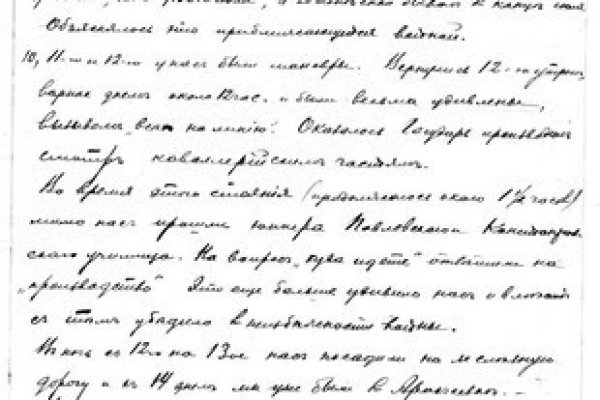 Объяснялось это приближающейся войной.
10, 11-го и 12-го у нас были маневры. Вернулись 12-го утром,
вернее днем около 12 час. и были весьма удивлены,
вызовом „всех на линию". Оказалось Государь производил
смотр кавалерийским частям.
Во время этого стояния (продолжалось около 1½ часов)
мимо нас прошли юнкера Павловского
училища. На вопрос „куда идете" ответили на
„производство" Это еще больше удивило нас и
с тем убедило в неизбежности войны.
В ночь с 12го на 13ое нас посадили на железную
дорогу и в 14 днем мы уже были в